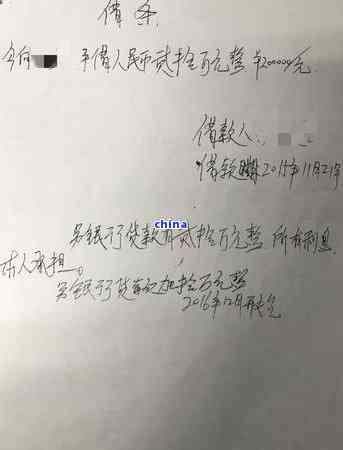 借条
今向 平借人民币贰拾万元整 ¥200000元.
借款人:
借款 2015年11月21日
china
另银行贷款有贰拾万元整 所有利息
本人承担。
另银行贷款 加拾万元整
2016年12月